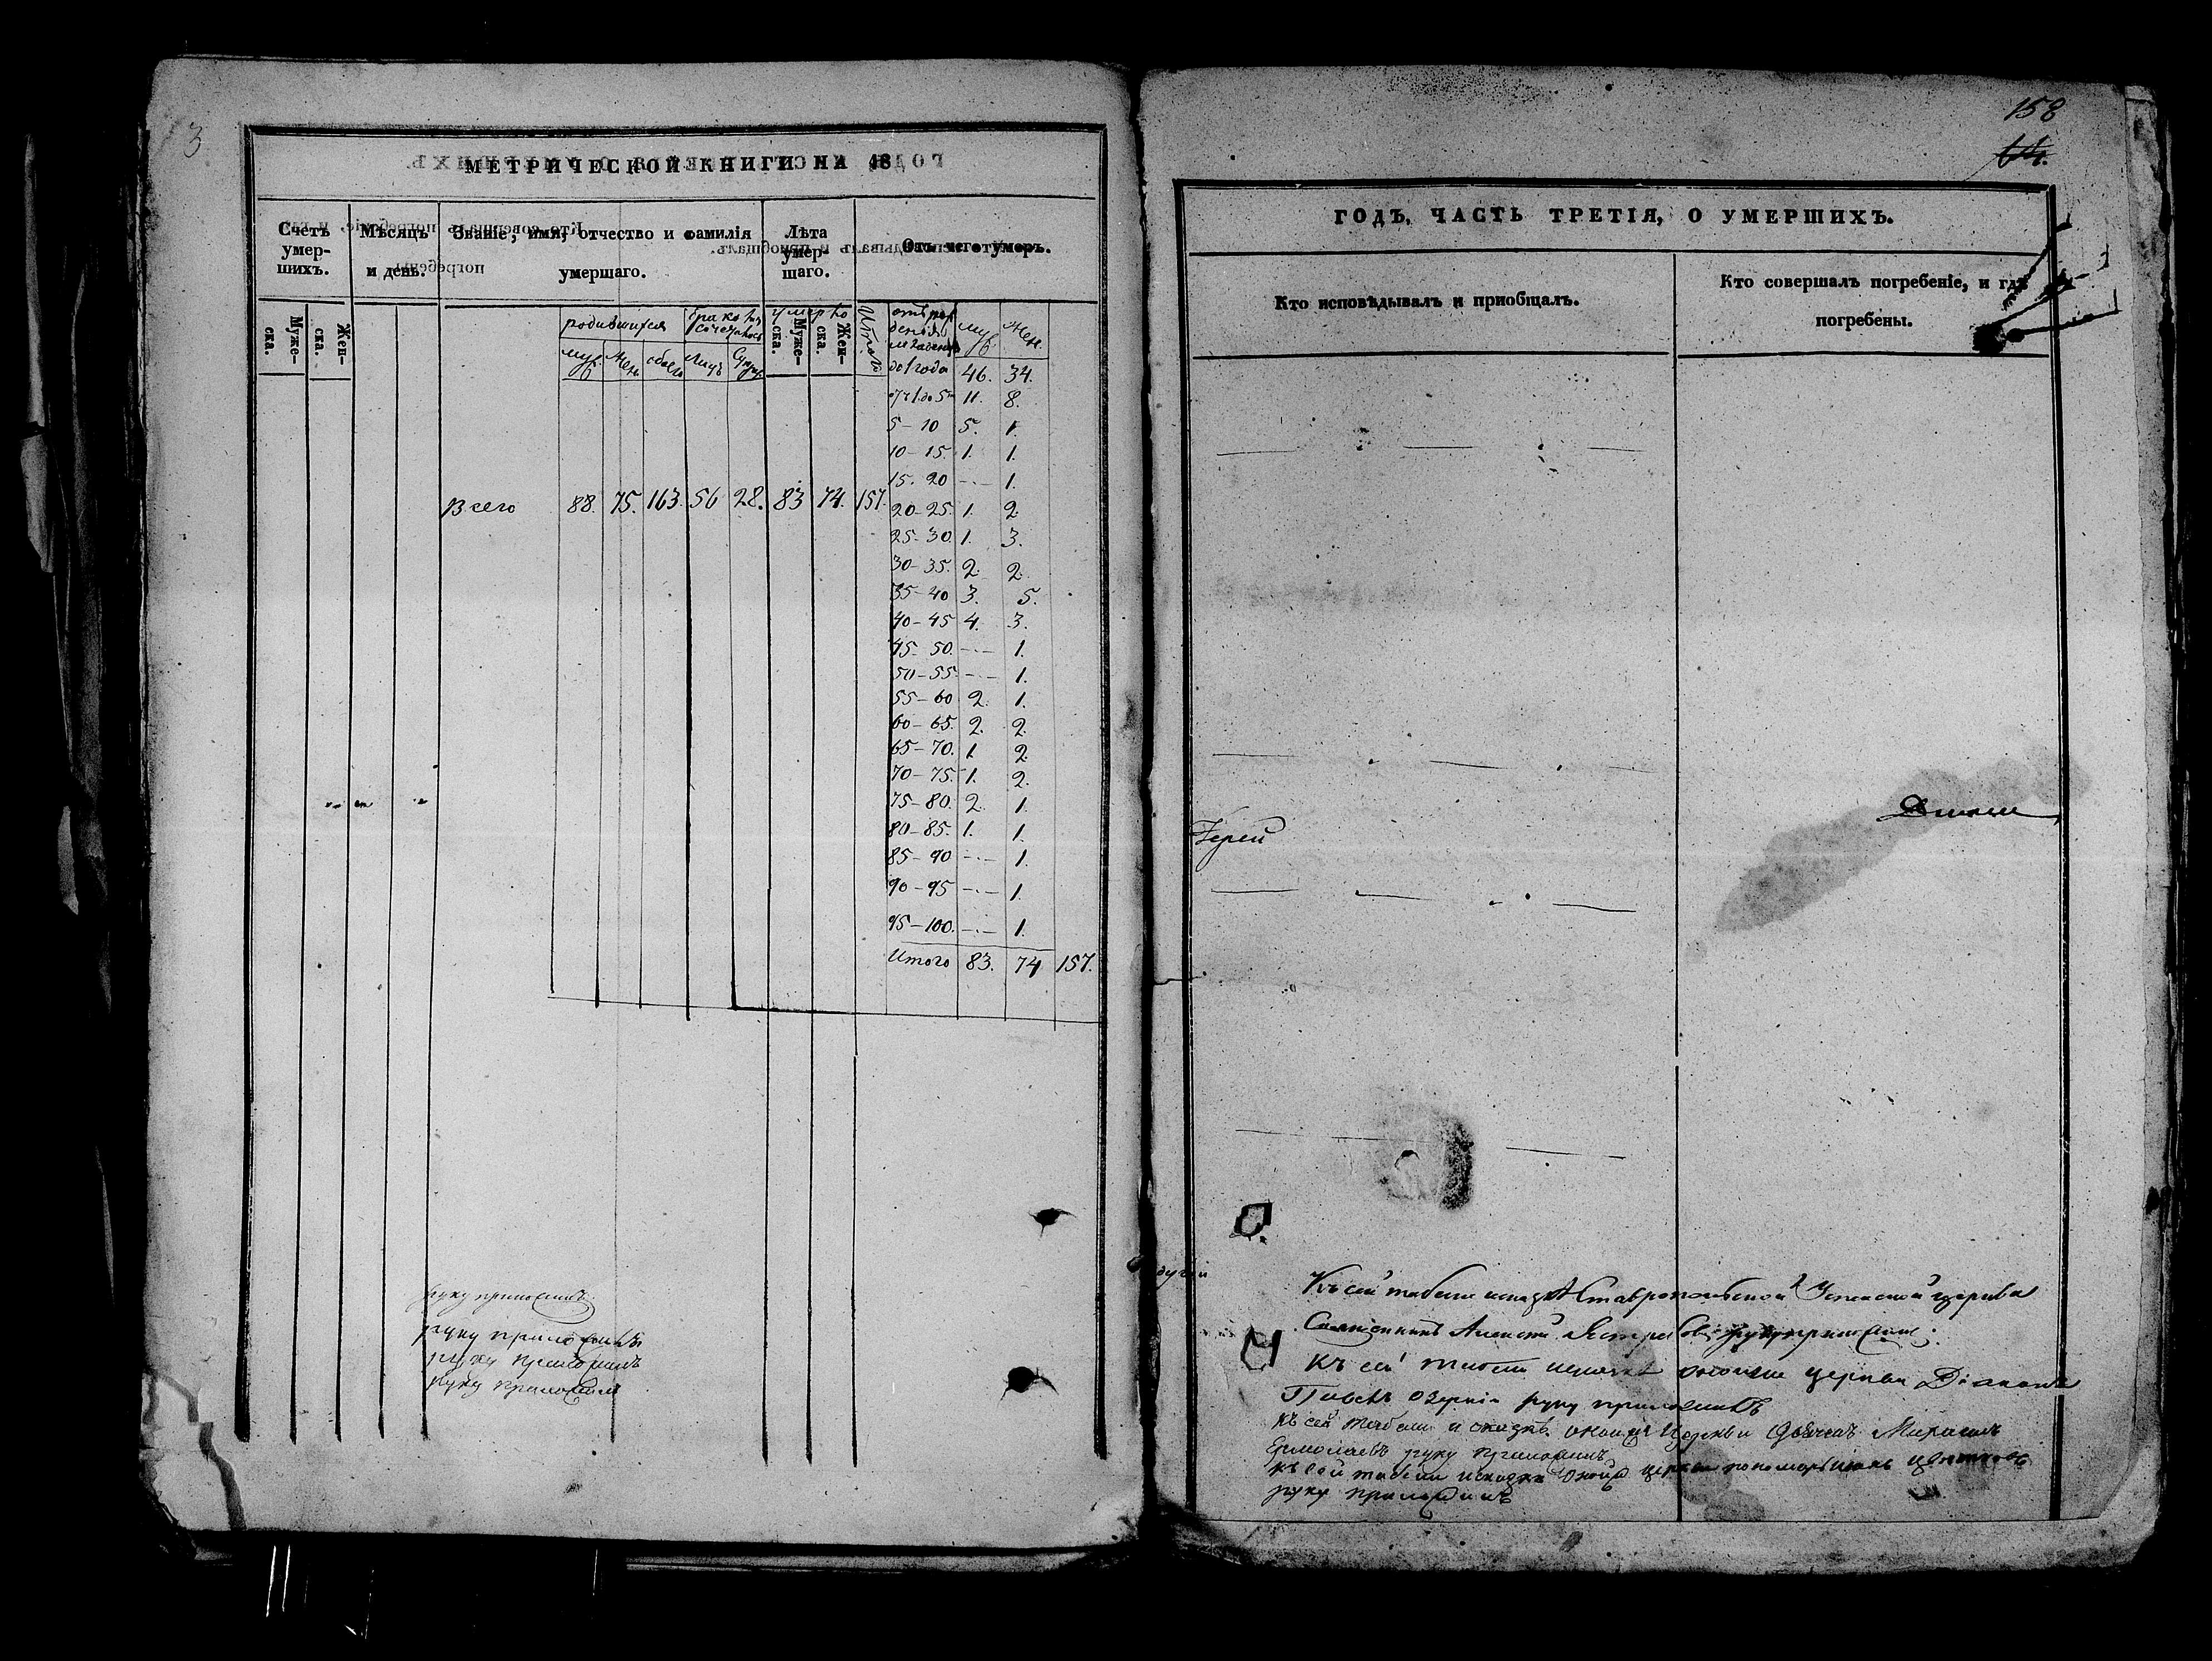 3
МЕТРИЧЕСКОЙ КНИГИ НА 18
Счетъ умер-шихъ.
Мѣсяцъ и день.
Званіе, имя, отчество и фамилія умершаго.
Лѣта умер-шаго.
Отъ чего умеръ.
Муже-ска.
Жен-ска.
родившихся
муж
жен
обоего
лицъ
умерло
Муже-ска.
Жен-ска.
Итого
муж
жен.
до 1 года 46. 34.
отъ 1. до 5 11. 8.
5 - 10 5. 1.
10 - 15. 1. 1.
15. 20 - - - 1.
Всего 88. 75. 163. 56 28. 83 74. 157.
20 - 25. 1. 2.
25 - 30. 1. 3.
30 - 35. 2. 2.
35 - 40 3. 5.
40 - 45 4. 3.
45 - 50. - - - 1.
50 - 55 - - - 1.
55 - 60 2. 1.
60 - 65. 2. 2.
65 - 70. 1. 2.
70 - 75. 1. 2.
75 - 80. 2. 1.
80 - 85. 1. 1.
85 - 90 - - - 1.
90 - 95 - - - 1.
95 - 100. - - - 1.
Итого 83. 74 157.
руку приложилъ
руку приложилъ
руку приложилъ
руку приложилъ
158
64.
ГОДЪ, ЧАСТЬ ТРЕТІЯ, О УМЕРШИХЪ.
Кто исповѣдывалъ и приобщалъ.
Кто совершалъ погребеніе, и гдѣ погребены.
Іерей
Къ сей табели Ставропольской Успенской церкви
Священникъ Алексѣй руку приложилъ
Къ сей табели церкви Діаконъ
руку приложилъ
Къ сей табели церкви
Ермолаевъ руку приложилъ
Къ сей табели церкви пономарь
руку приложилъ